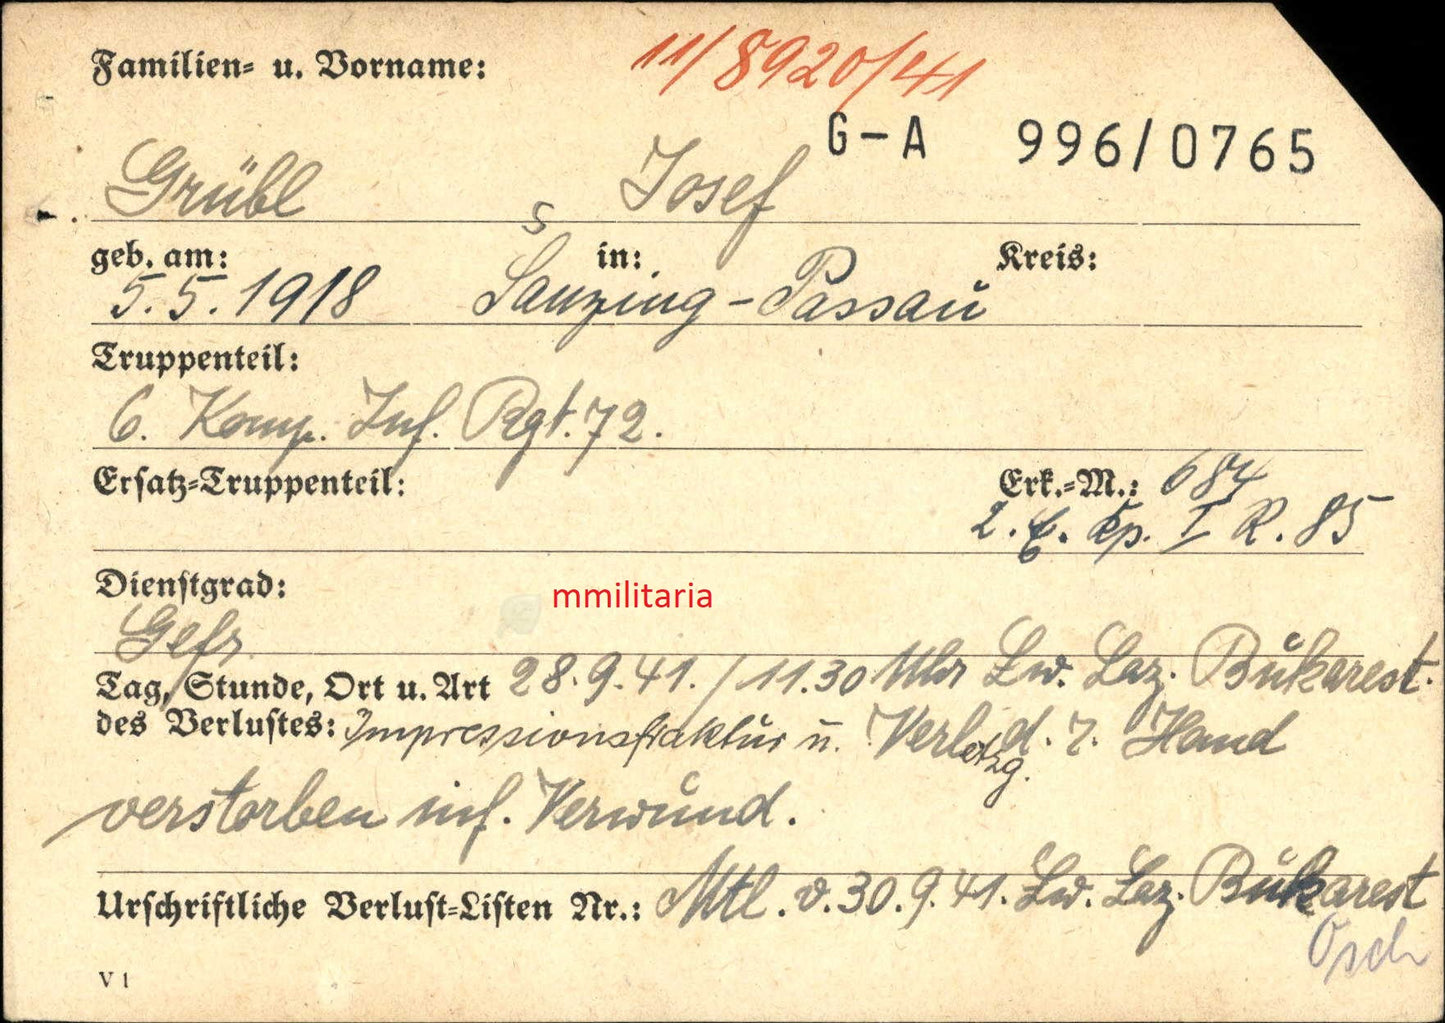 11/8920/41
Familien- u. Vorname:
G-A 996/0765
Grübl Josef
S
geb. am: in: Kreis:
5.5.1918 Sanzing - Passau
Truppenteil:
6. Komp. Inf. Rgt. 72.
Ersatz-Truppenteil: Erk.-M.: 684
2. E. Kp. I R. 85
Dienstgrad:
mmilitaria
Gefr.
Tag, Stunde, Ort u. Art 28.9.41. / 11.30 Uhr Lw. Laz. Bukarest.
des Verlustes: Impressionsfraktur u. Verletzg. d. r. Hand
verstorben inf. Verwund.
Urschriftliche Verlust-Listen Nr.: Mtl. v. 30.9.41. Lw. Laz. Bukarest
V 1